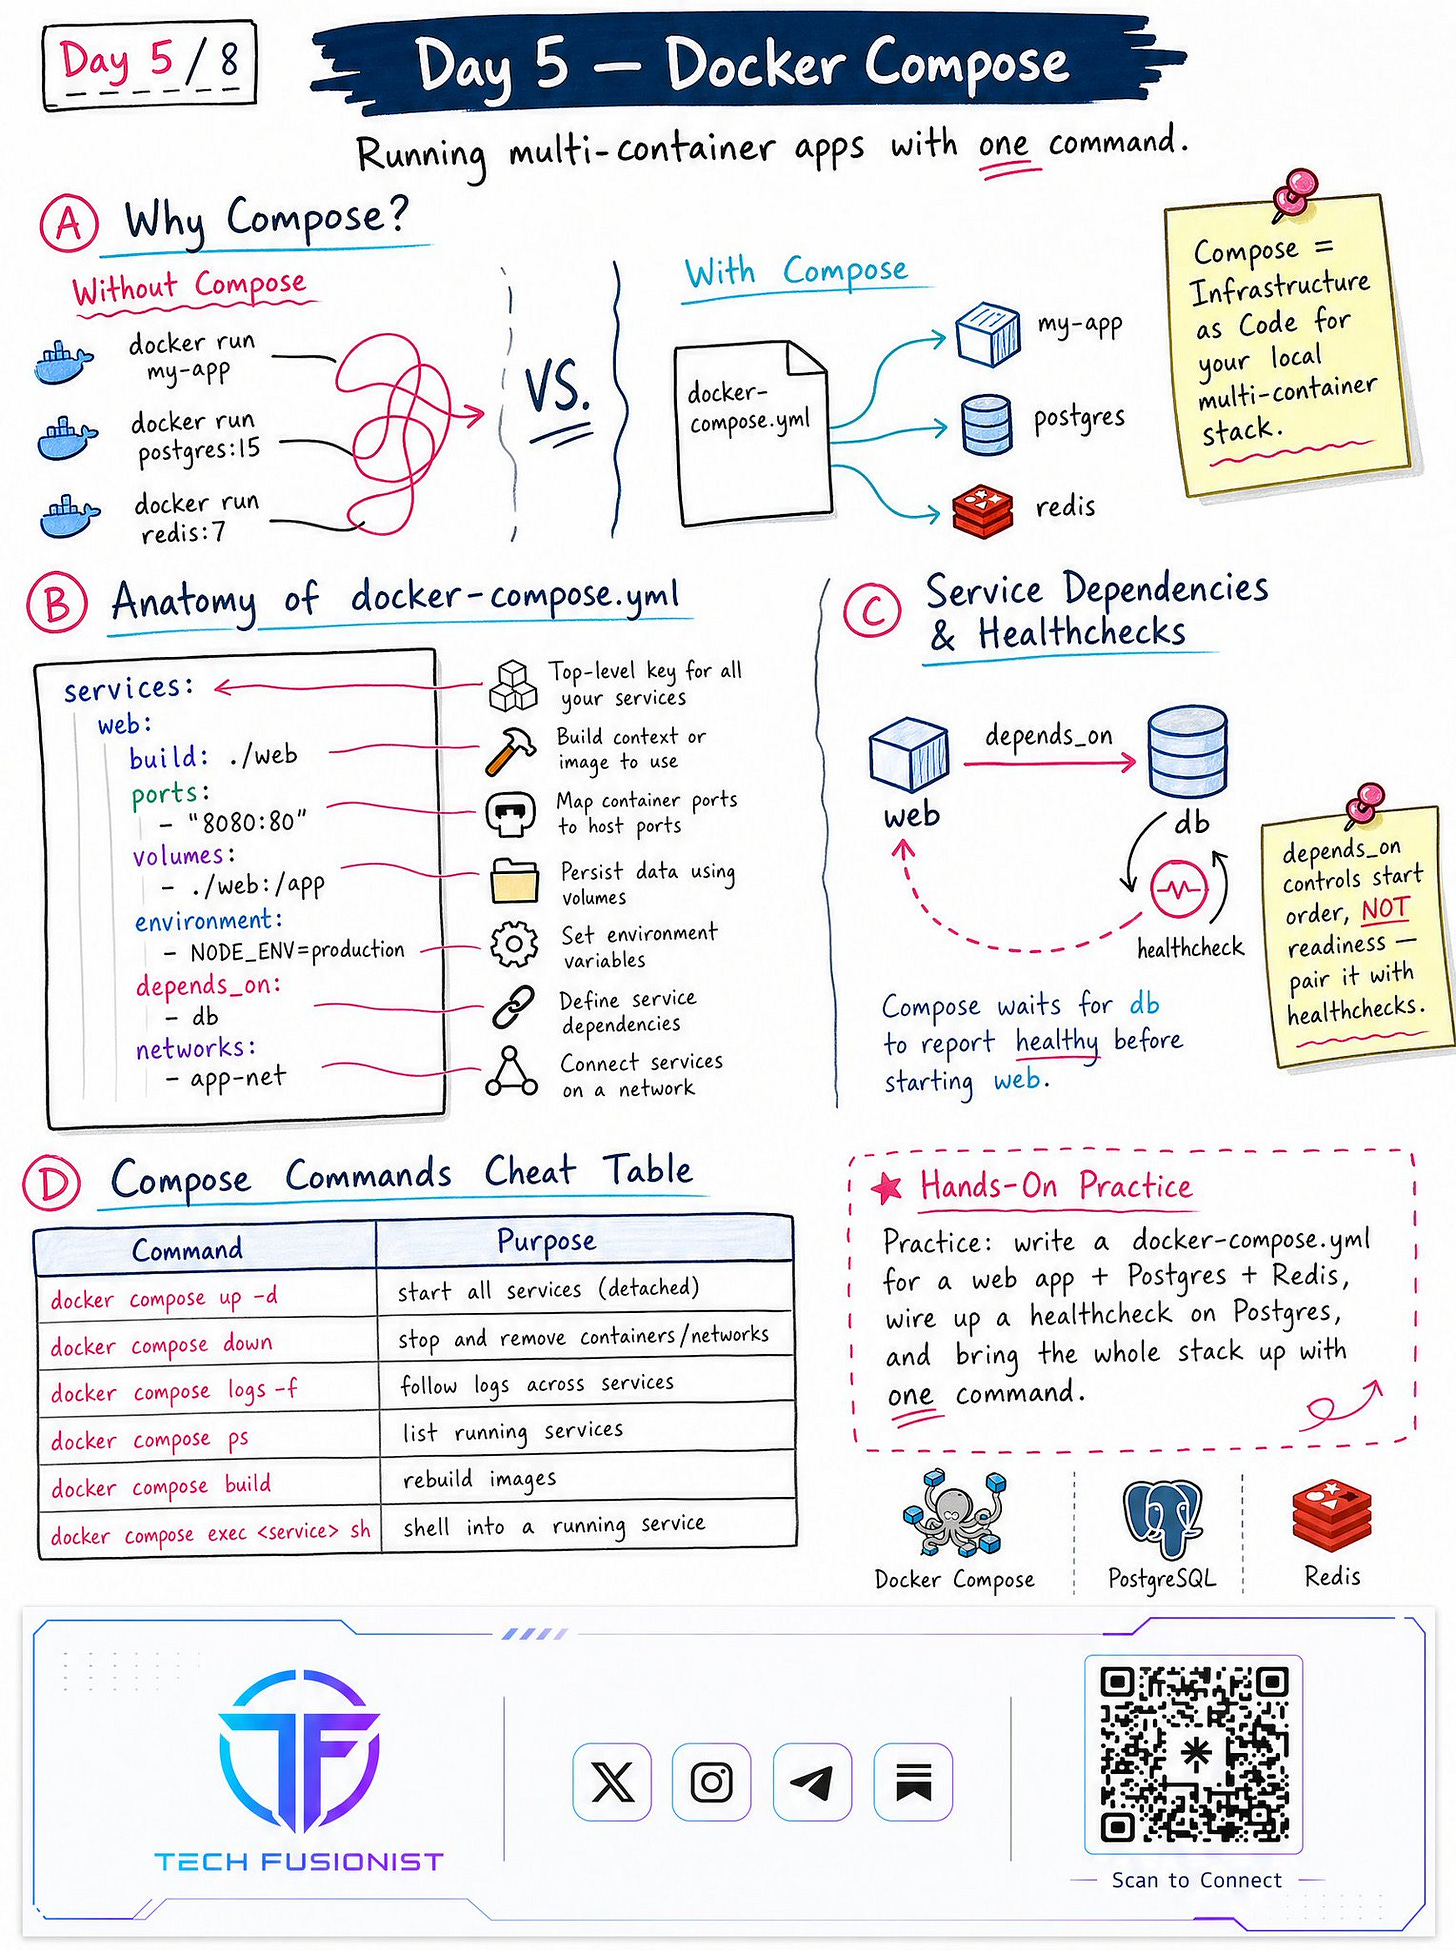 Day 5 / 8
Day 5 — Docker Compose
Running multi-container apps with one command.
A Why Compose?
Without Compose
docker run
my-app
docker run
postgres:15
docker run
redis:7
VS.
With Compose
docker-
compose.yml
my-app
postgres
redis
Compose =
Infrastructure
as Code for
your local
multi-container
stack.
B Anatomy of docker-compose.yml
services:
web:
build: ./web
ports:
- "8080:80"
volumes:
- ./web:/app
environment:
- NODE_ENV=production
depends_on:
- db
networks:
- app-net
Top-level key for all
your services
Build context or
image to use
Map container ports
to host ports
Persist data using
volumes
Set environment
variables
Define service
dependencies
Connect services
on a network
C Service Dependencies
& Healthchecks
depends_on
web
db
healthcheck
Compose waits for db
to report healthy before
starting web.
depends_on
controls start
order, NOT
readiness —
pair it with
healthchecks.
D Compose Commands Cheat Table
Command Purpose
docker compose up -d start all services (detached)
docker compose down stop and remove containers/networks
docker compose logs -f follow logs across services
docker compose ps list running services
docker compose build rebuild images
docker compose exec <service> sh shell into a running service
Hands-On Practice
Practice: write a docker-compose.yml
for a web app + Postgres + Redis,
wire up a healthcheck on Postgres,
and bring the whole stack up with
one command.
Docker Compose
PostgreSQL
Redis
TECH FUSIONIST
Scan to Connect